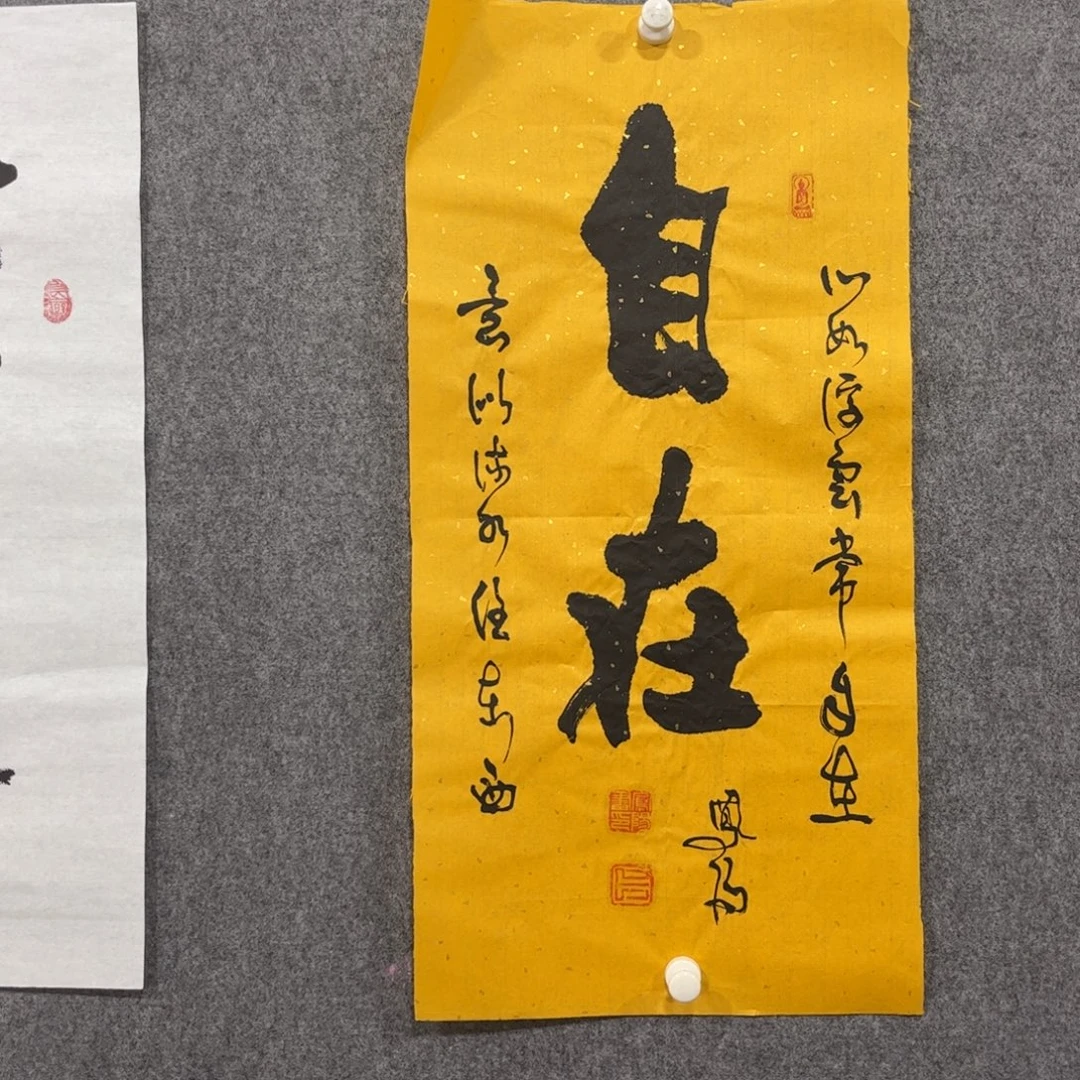 心如浮雲常自在
自在
意似流水任東西